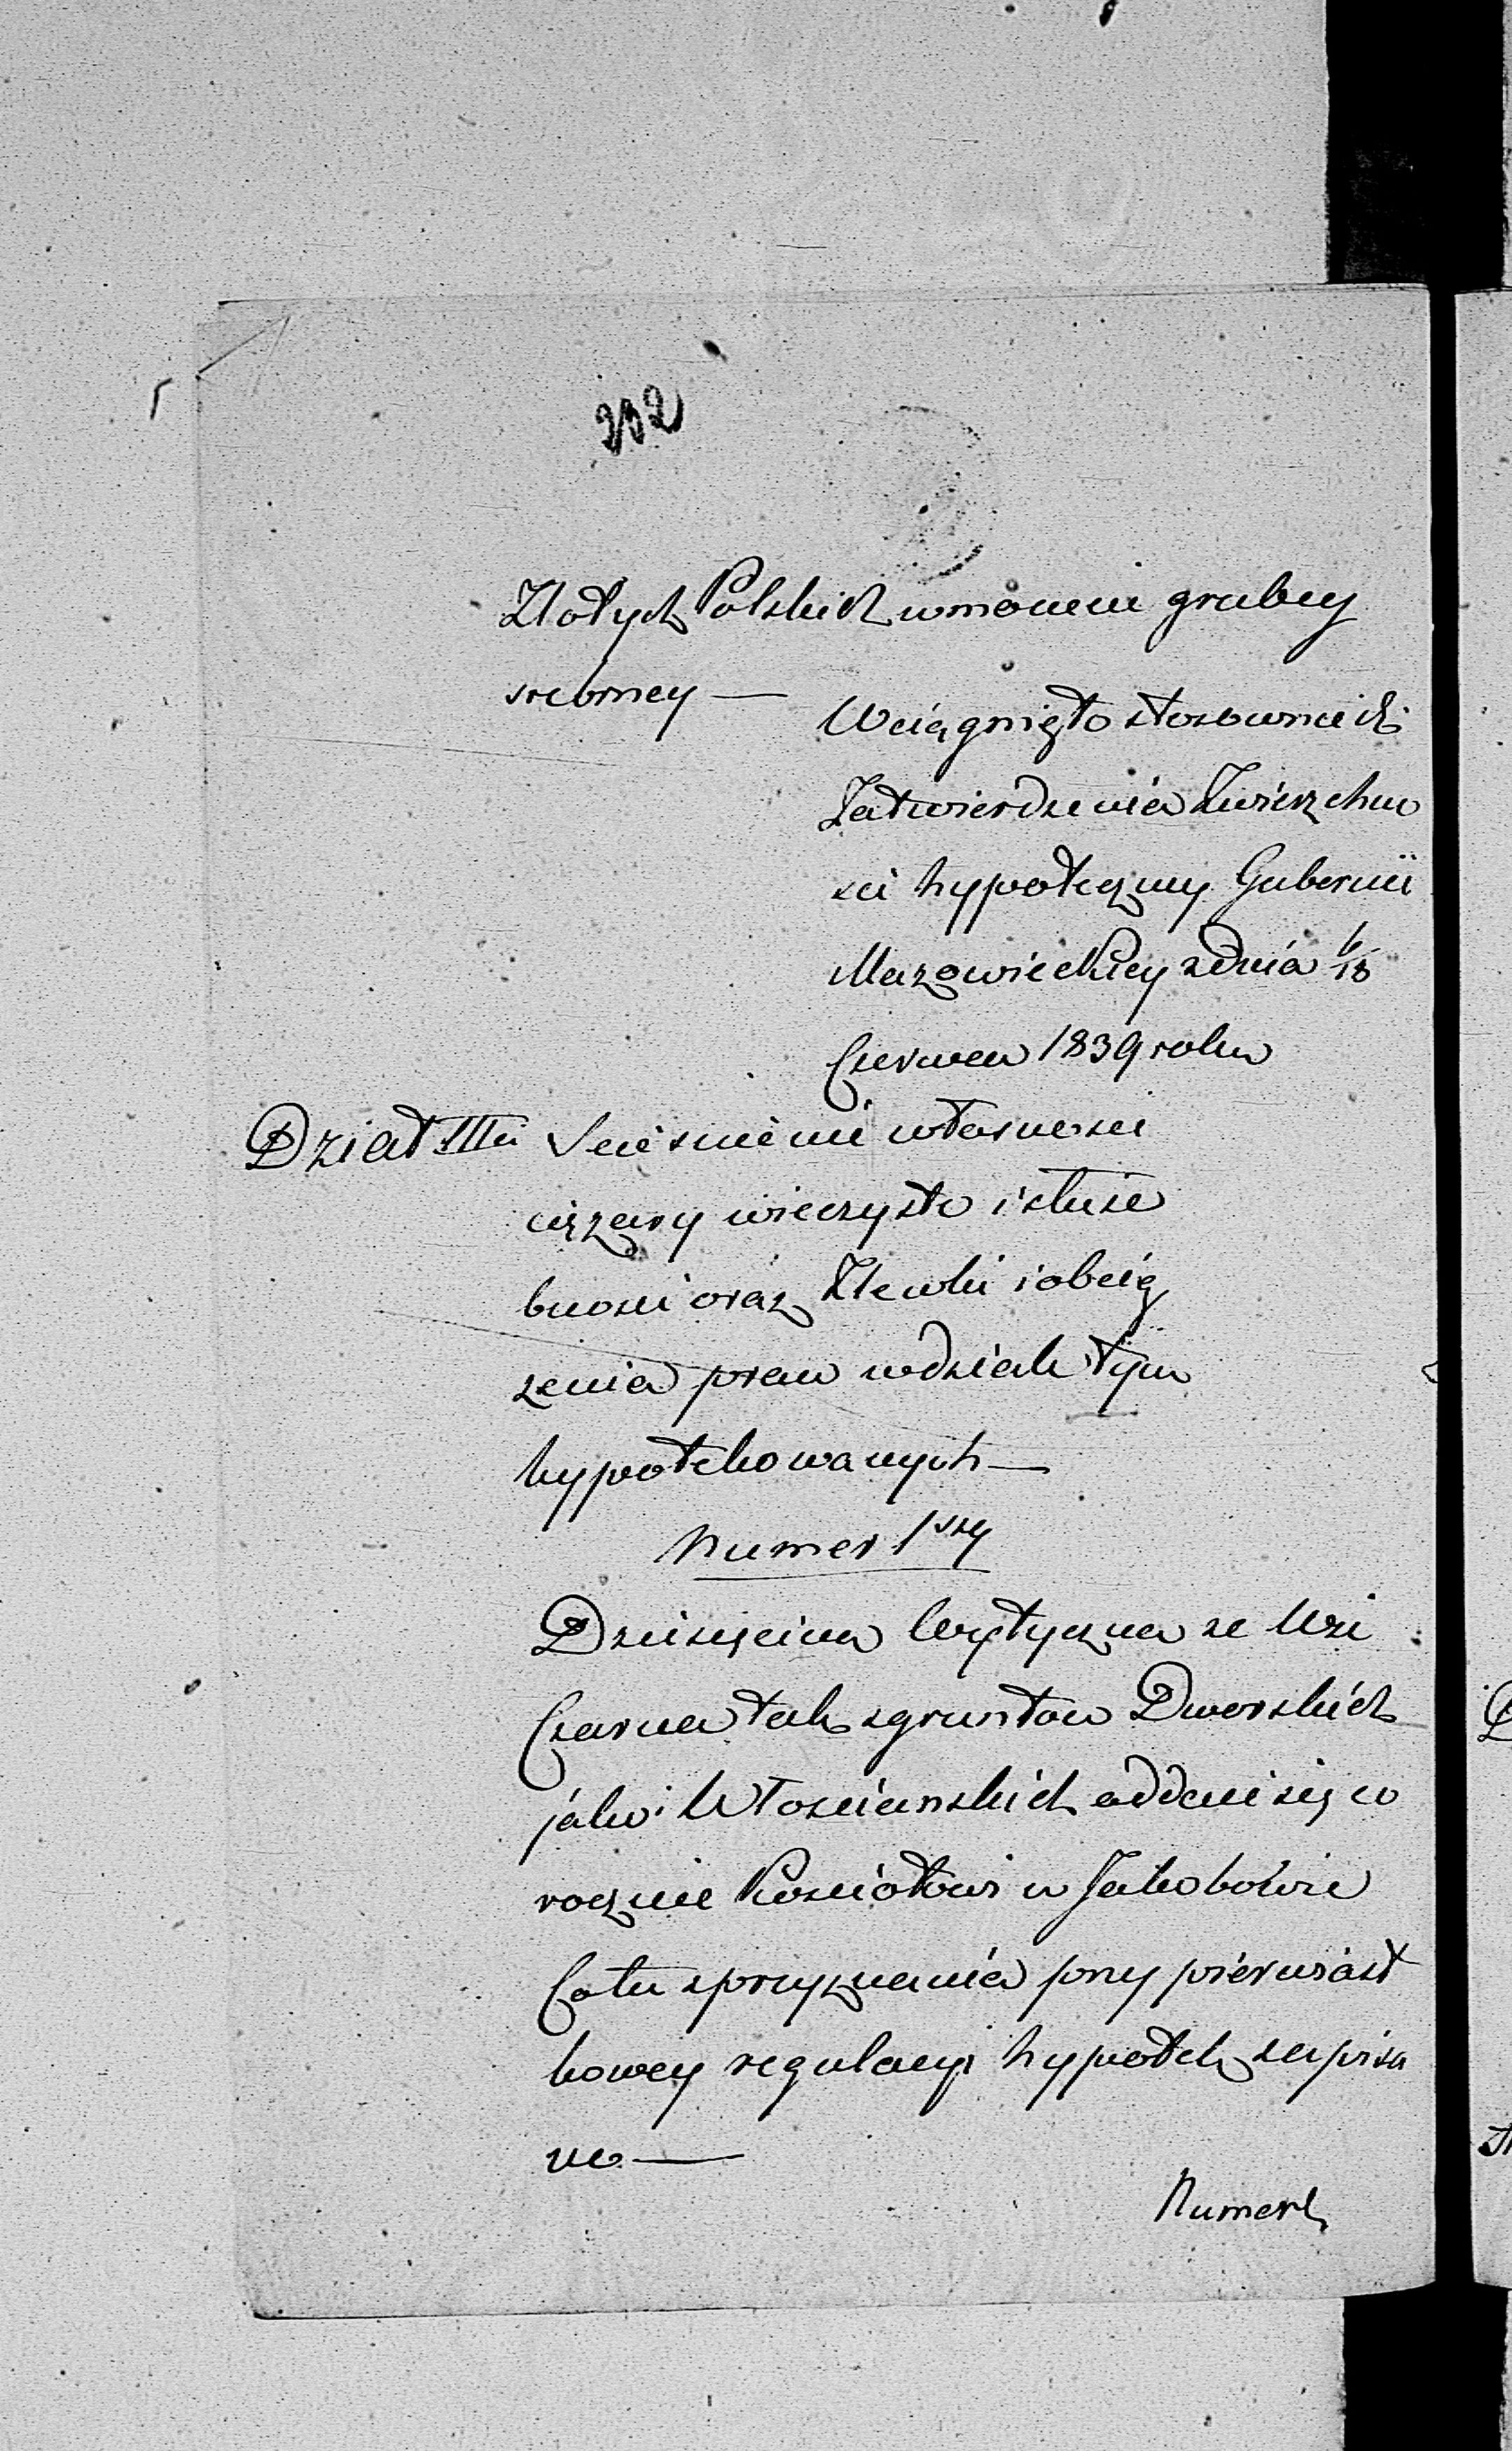 252
Złotych Polskich w monecie grubey
srebrney —
Wciągnięto stosownie do
Zatwierdzenia Zwierzchno
sci hypoteczney Gubernii
Mazowieckiey z dnia 6/18
Czerwca 1839 roku
Dział IIIci Scieśnienie własności
ciężary wieczyste i służe
bności oraz Zlewki i obcią
żenia praw w dziale tym
hypotekowanych —
Numer 1szy
Dziesięcina Wytyczna ze Wsi
Czarna tak z gruntow Dworskich
jako i Włościanskich oddaie się co
rocznie Kościołowi w Jakobowie
Co tu z przyznania przy pierwiast
kowey regulacyi hypotek zapisa
no —
Numer